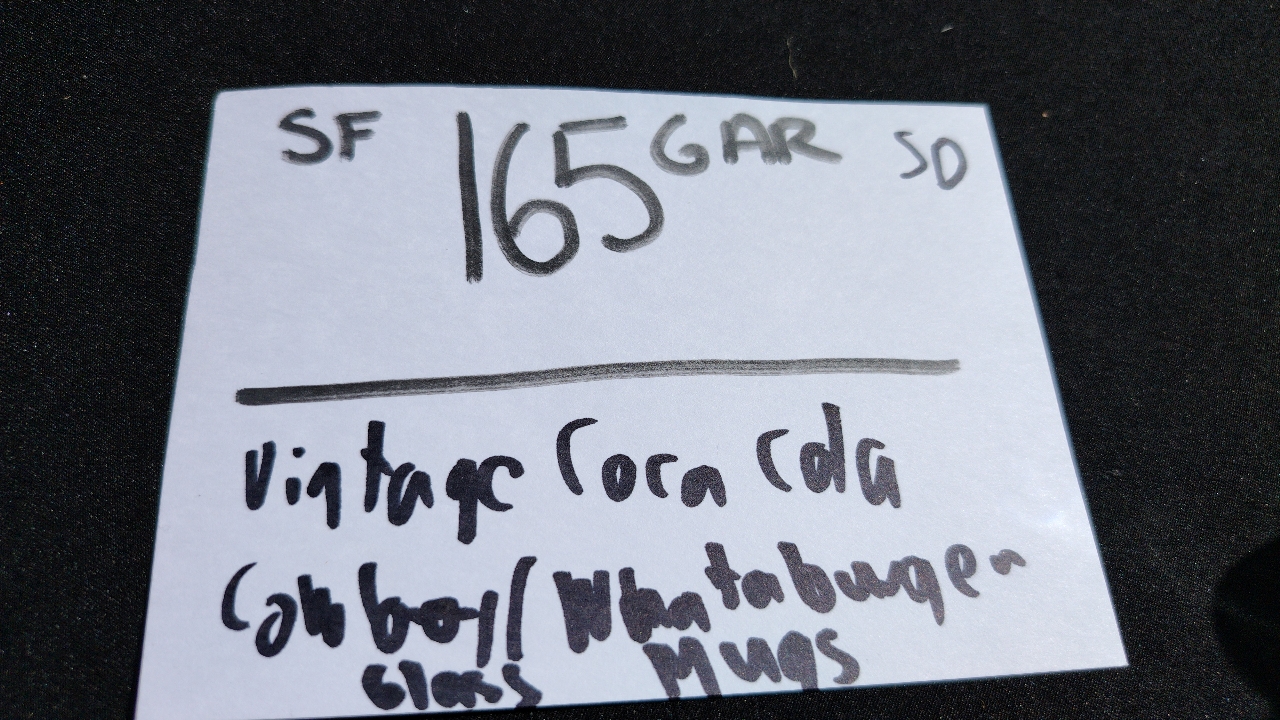 SF 165 GAR SD
Vintage Coca Cola
Cowboy/Whataburger
Glass Mugs